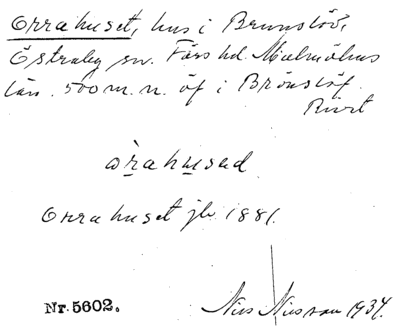 Orrahuset, hus i Brunslöv,
Östraby sn. Färs hd. Malmöhus
län. 500 m. n. öf i Brönslöf.
Rivet
årahused
Orrahuset jb 1881.
Nr. 5602.
Nils Nilsson 1934.